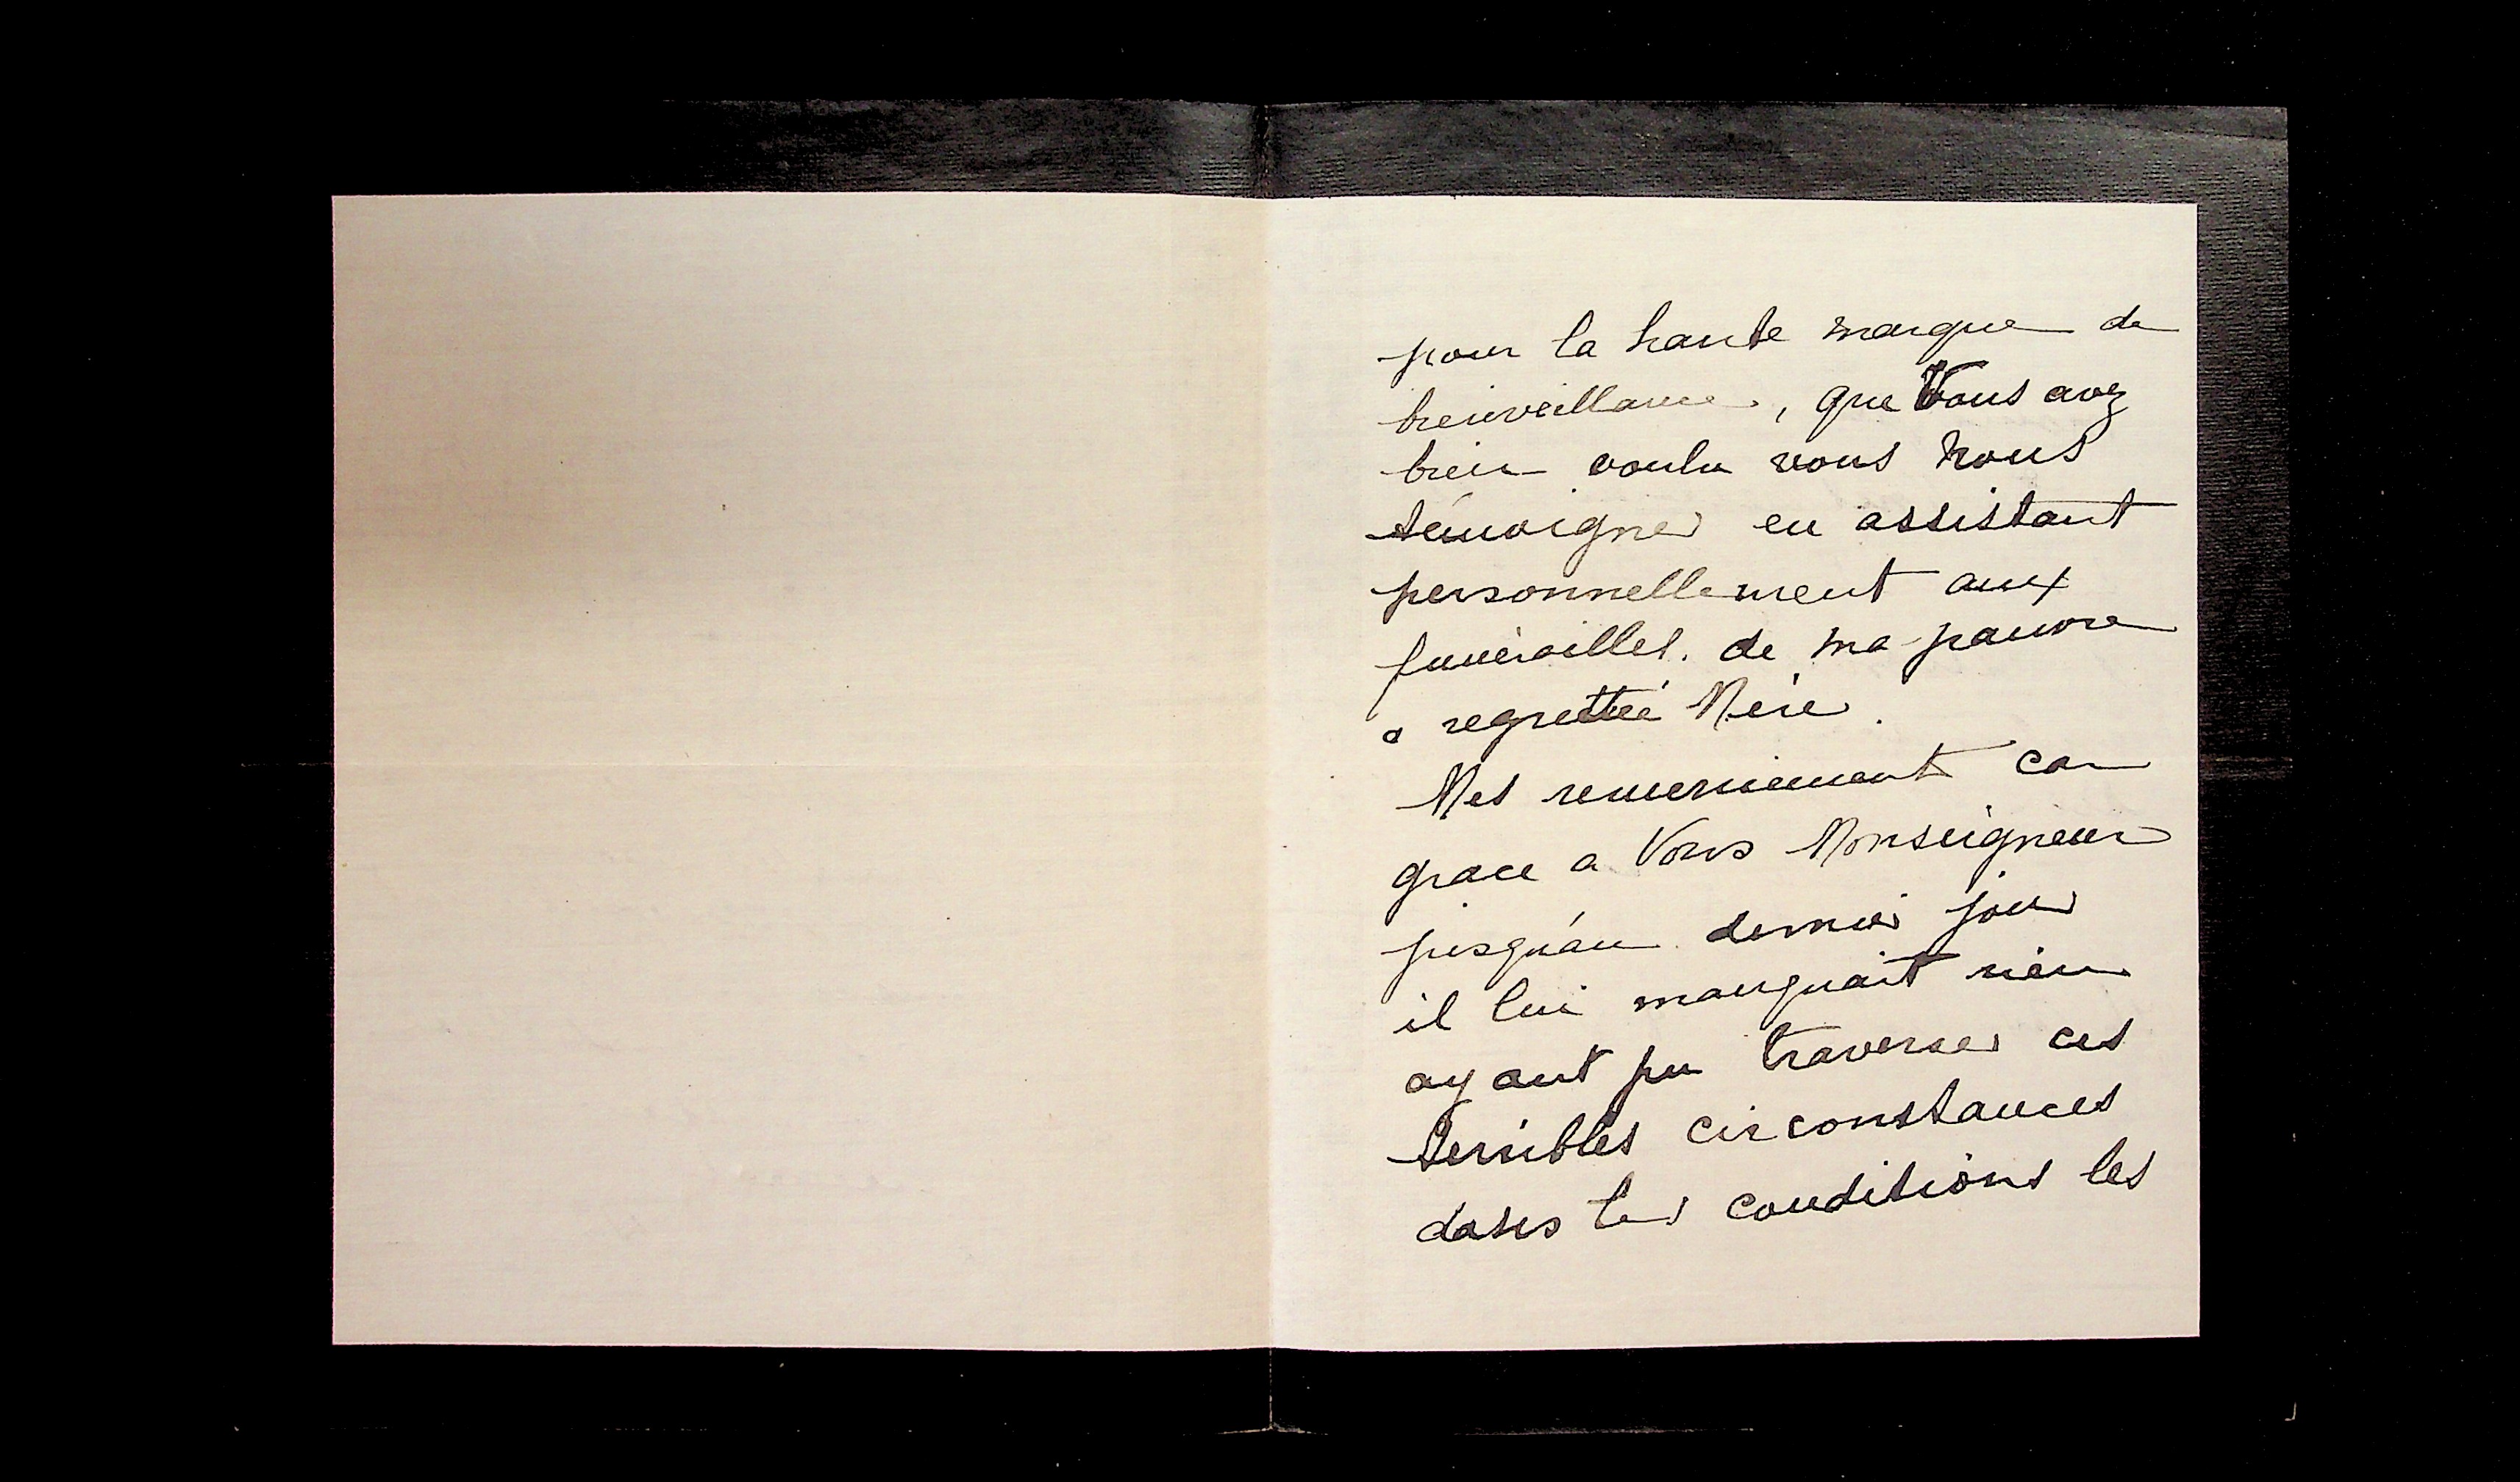 pour la haute marque de
bienveillance, que Vous avez
bien voulu vous nous
témoigner en assistant
personnellement aux
funérailles. de ma pauvre
a regrettée Mère.
Mes remerciement car
grace a Vous Monseigneur
jusqu'au dernier jour
il lui manquait rien
ayant pu traverser ces
terribles circonstances
dans les conditions les